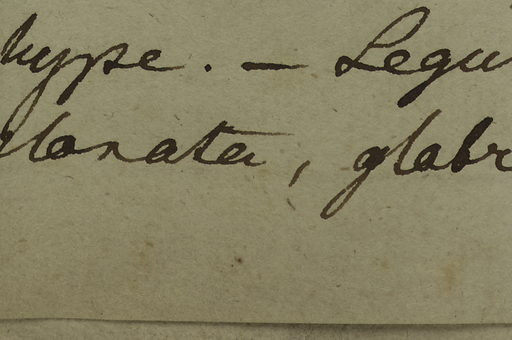 hype. — Legu
lanata, glabr